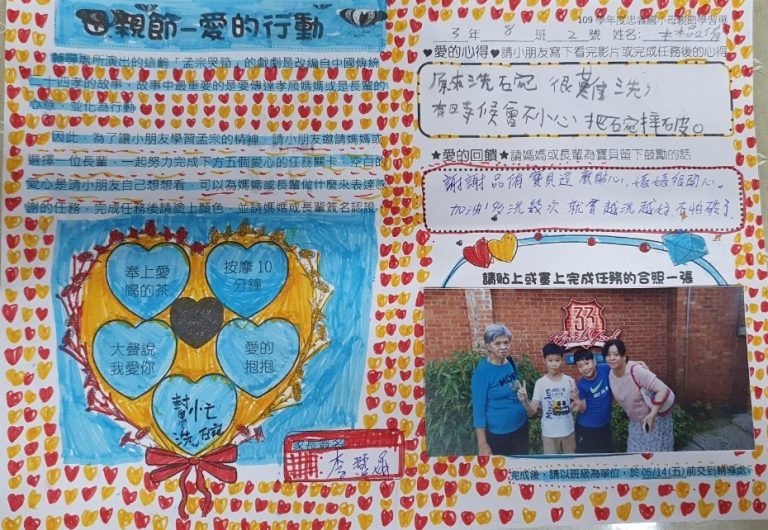 母親節-愛的行動
輔導處所演出的這齣「孟宗哭筍」的戲劇是改編自中國傳統
二十四孝的故事，故事中最重要的是要傳達孝順媽媽或是長輩的
心意，並化為行動。
因此，為了讓小朋友學習孟宗的精神，請小朋友邀請媽媽或
選擇一位長輩，一起努力完成下方五個愛心的任務關卡，空白的
愛心是請小朋友自己想想看，可以為媽媽或長輩做什麼來表達感
謝的任務，完成任務後請塗上顏色，並請媽媽或長輩簽名認證。
奉上愛
喝的茶
按摩10
分鐘
大聲說
我愛你
愛的
抱抱
幫忙
洗碗
家長簽名
109 學年度忠義國小母親節學習單
3 年 8 班 2 號 姓名：
♥愛的心得♥請小朋友寫下看完影片或完成任務後的心得
原來洗碗很難洗，
有時候會不小心把碗摔破。
★愛的回饋★請媽媽或長輩為寶貝留下鼓勵的話
謝謝品侑寶貝這麼貼心，媽媽很開心。
加油！多洗幾次就會越洗越好不怕破了
請貼上或畫上完成任務的合照一張
33
完成後，請以班級為單位，於 05/14(五)前交到輔導處